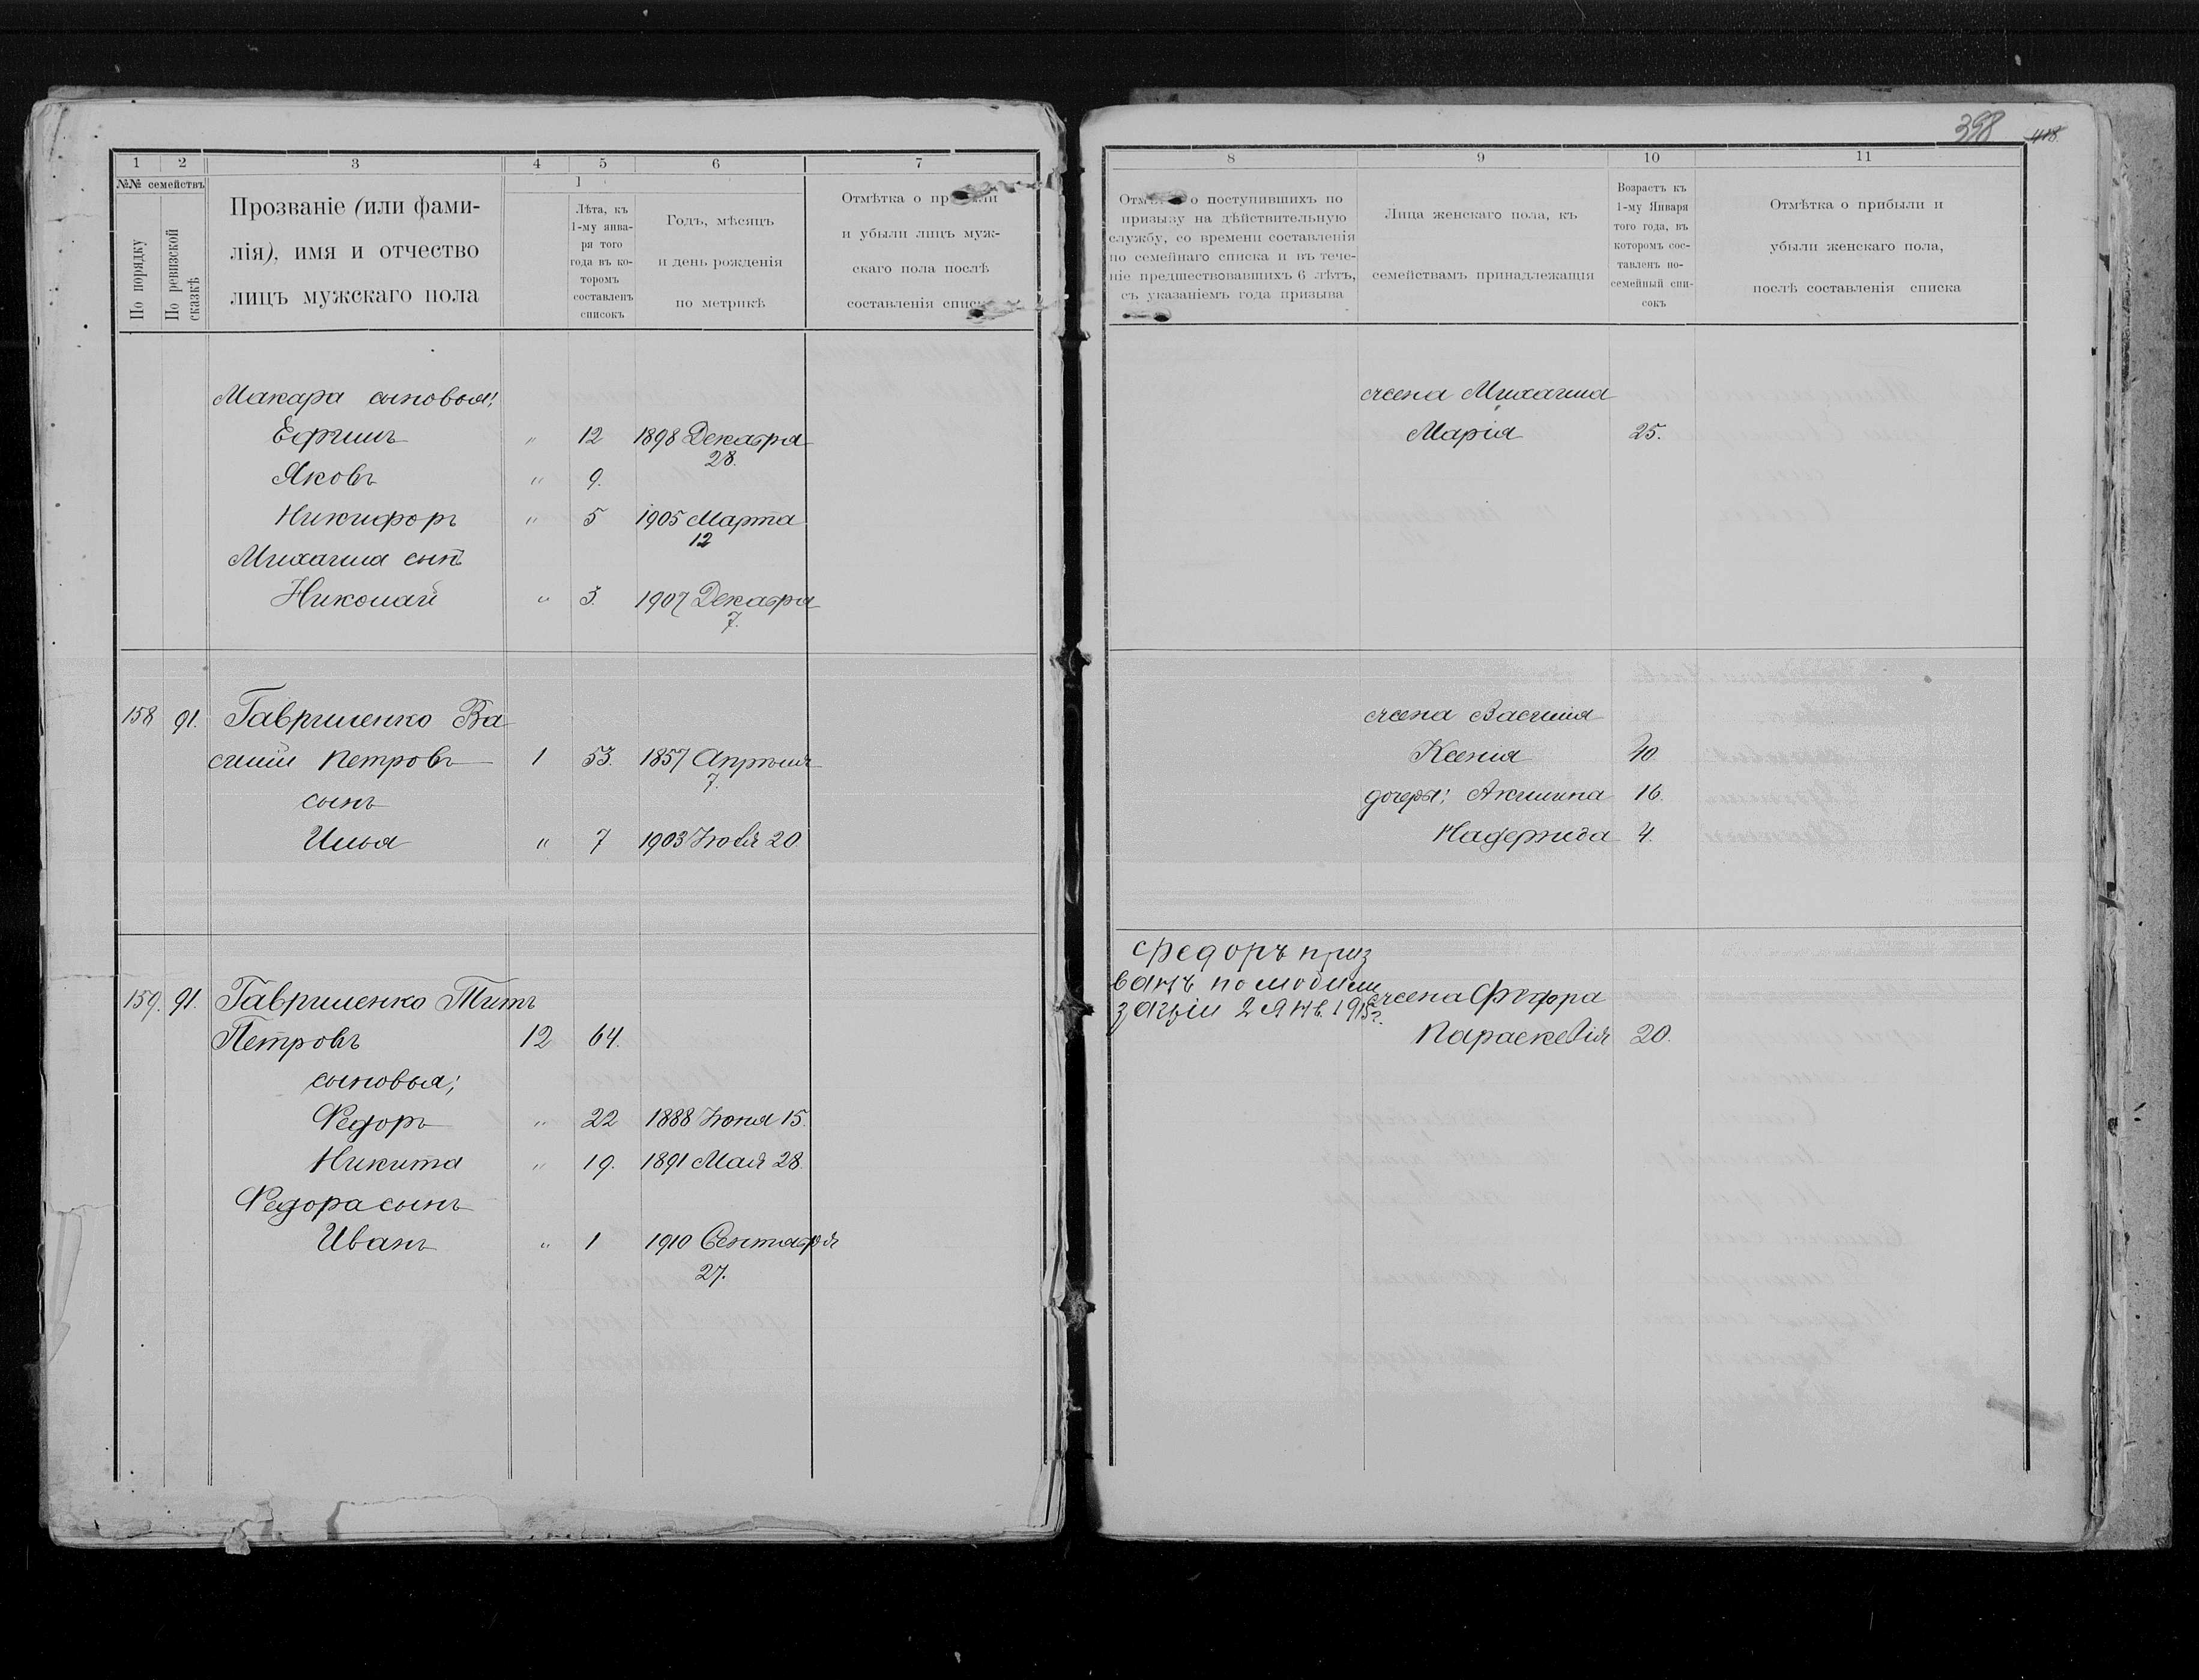 1 2 3 4 5 6 7
№№ семействъ
По порядку
По ревизской сказкѣ
Прозваніе (или фами-
лія), имя и отчество
лицъ мужскаго пола
1
Лѣта, къ
1-му янва-
ря того
года въ ко-
торомъ
составленъ
списокъ
Годъ, мѣсяцъ
и день рожденія
по метрикѣ
Отмѣтка о
и убыли лицъ муж-
скаго пола послѣ
составленія
Макара сыновья:
Ефимъ " 12 1898 Декабря
28.
Яковъ " 9.
Никифоръ " 5 1905 Марта
12
Михаила сынъ
Николай " 3. 1907 Декабря
7.
158 91. Гавриленко Ва
силій Петровъ 1 53. 1857 Апрѣля
7.
сынъ
Илья " 7 1903 Іюля 20.
159. 91. Гавриленко Титъ
Петровъ 12 64.
сыновья;
Федоръ " 22 1888 Іюня 15.
Никита " 19. 1891 Мая 28.
Федора сынъ
Иванъ " 1 1910 Сентября
27.
398 418.
8 9 10 11
о поступившихъ по
призыву на дѣйствительную
службу, со времени составленія
по семейнаго списка и въ тече-
ніе предшествовавшихъ 6 лѣтъ,
съ указаніемъ года призыва
Лица женскаго пола, къ
семействамъ принадлежащія
Возрастъ къ
1-му Января
того года, въ
которомъ сос-
тавленъ по-
семейный спи-
сокъ
Отмѣтка о прибыли и
убыли женскаго пола,
послѣ составленія списка
жена Михаила
Марія 25.
жена Василія
Ксенія 40.
дочеры: Акилина 16.
Надежда 4.
Федоръ приз
ванъ по мобили
заціи 2 Янв. 1915 г.
жена Федора
Параскевія 20.